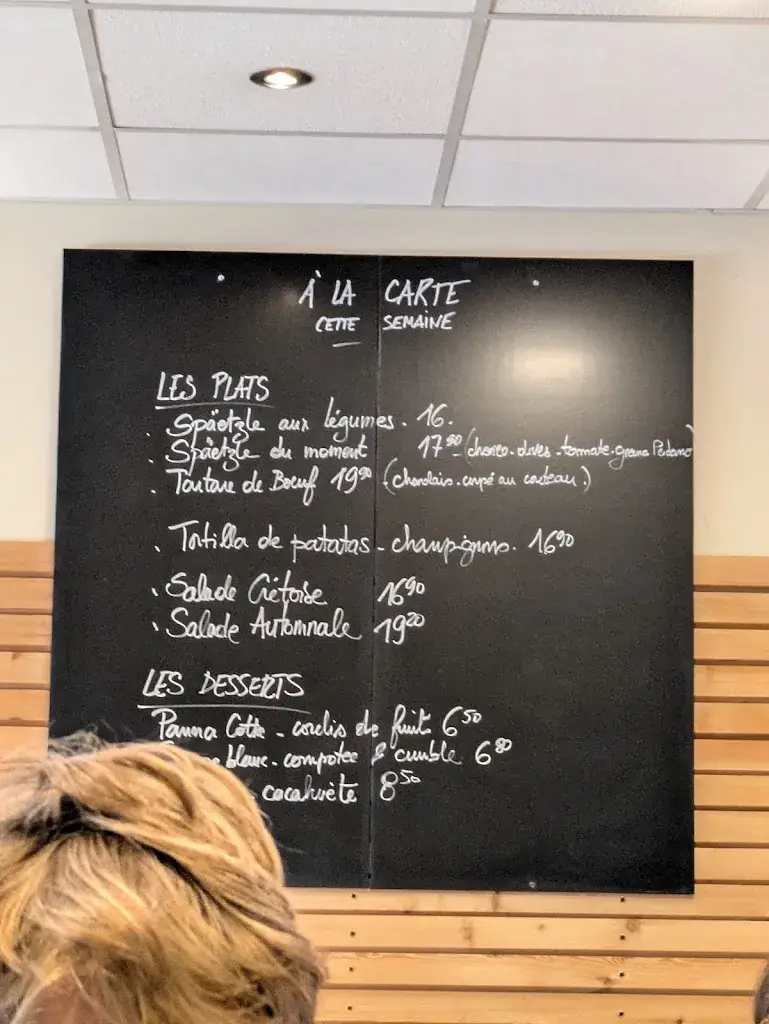 À LA CARTE
CETTE SEMAINE
LES PLATS
. Späetzle aux légumes. 16.
. Späetzle du moment 17⁹⁰ (choriso-olives-tomate-grana Padano
. Tartare de Bœuf 19⁹⁰ (charolais-coupé au couteau.)
. Tortilla de patatas - champignons. 16⁹⁰
. Salade Crétoise 16⁹⁰
. Salade Automnale 19²⁰
LES DESSERTS
Panna Cotta - coulis de fruits 6⁵⁰
blanc - compotée & crumble 6⁸⁰
cacahuète 8⁵⁰